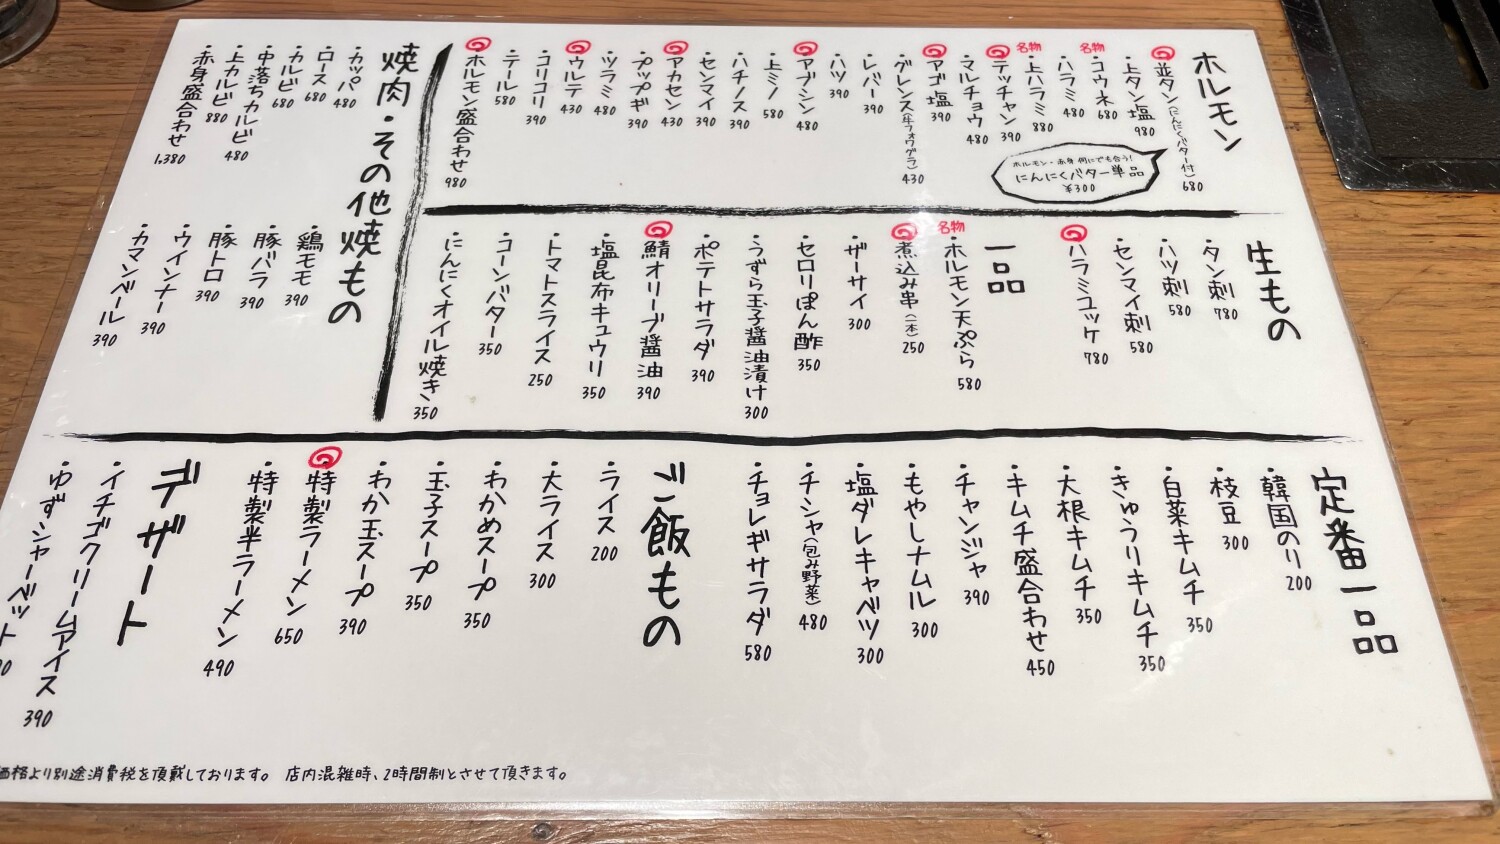 ホルモン
・並タン(にんにくバター付) 680
・上タン塩 980
名物
・コウネ 680
・ハラミ 480
名物
・上ハラミ 880
・テッチャン 390
・マルチョウ 480
・アゴ塩 390
・グレンス(牛フォワグラ) 430
・レバー 390
・ハツ 390
・アブシン 480
・上ミノ 580
・ハチノス 390
・センマイ 390
・アカセン 430
・プップギ 390
・ツラミ 480
・ウルテ 430
・コリコリ 390
・テール 580
・ホルモン盛合わせ 980
ホルモン・赤身 何にでも合う!
にんにくバター単品
¥300
生もの
・タン刺 780
・ハツ刺 580
・センマイ刺 580
・ハラミユッケ 780
一品
名物
・ホルモン天ぷら 580
・煮込み串(一本) 250
・ザーサイ 300
・セロリぽん酢 350
・うずら玉子醤油漬け 300
・ポテトサラダ 390
・鯖オリーブ醤油 390
・塩昆布キュウリ 350
・トマトスライス 250
・コーンバター 350
・にんにくオイル焼き 350
焼肉・その他焼もの
・カッパ 480
・ロース 680
・カルビ 680
・中落ちカルビ 480
・上カルビ 880
・赤身盛合わせ 1,380
・鶏モモ 390
・豚バラ 390
・豚トロ 390
・ウインナー 390
・カマンベール 390
定番一品
・韓国のり 200
・枝豆 300
・白菜キムチ 350
・きゅうりキムチ 350
・大根キムチ 350
・キムチ盛合わせ 450
・チャンジャ 390
・もやしナムル 300
・塩ダレキャベツ 300
・チシャ(包み野菜) 480
・チョレギサラダ 580
ご飯もの
・ライス 200
・大ライス 300
・わかめスープ 350
・玉子スープ 350
・わか玉スープ 390
・特製ラーメン 650
・特製半ラーメン 490
デザート
・イチゴクリームアイス 390
・ゆずシャーベット
価格より別途消費税を頂戴しております。 店内混雑時、2時間制とさせて頂きます。